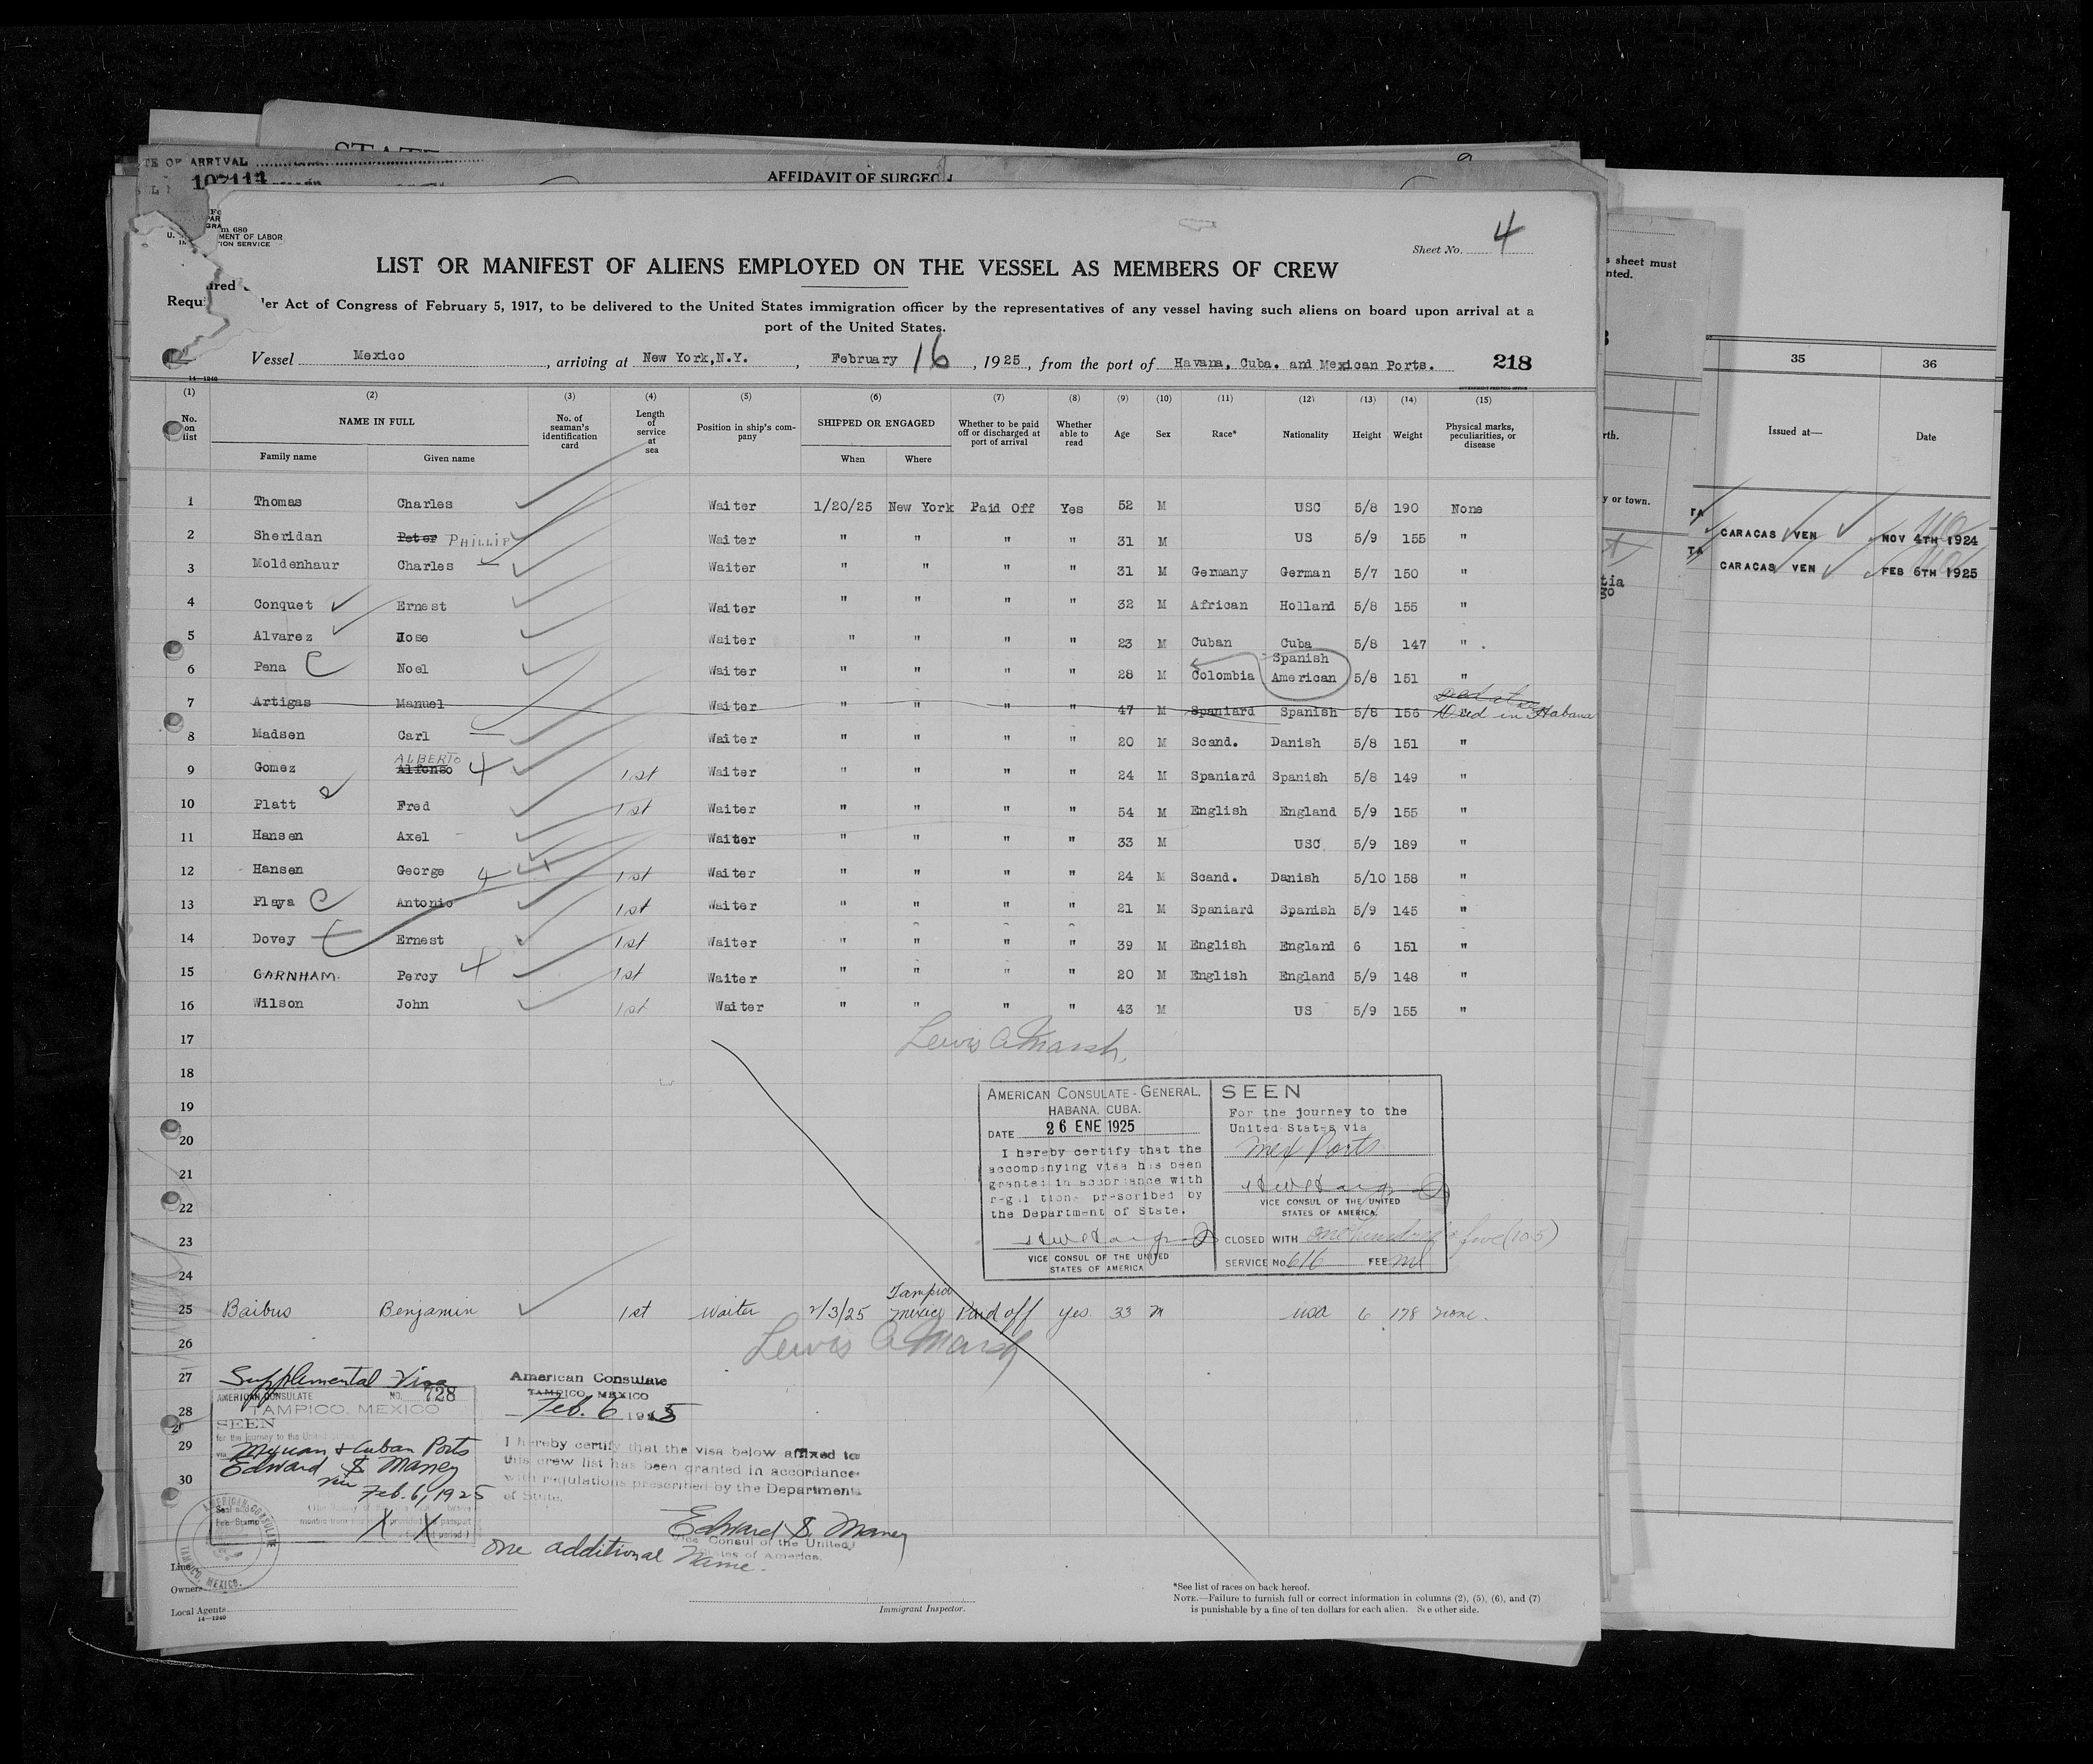 STATE
TE OF ARRIVAL
107114
AFFIDAVIT OF SURGEON
m 680
U. MENT OF LABOR
ION SERVICE
Sheet No. 4
LIST OR MANIFEST OF ALIENS EMPLOYED ON THE VESSEL AS MEMBERS OF CREW
Requi er Act of Congress of February 5, 1917, to be delivered to the United States immigration officer by the representatives of any vessel having such aliens on board upon arrival at a
port of the United States.
Vessel Mexico, arriving at New York,N.Y., February 16, 1925, from the port of Havana, Cuba. and Mexican Ports. 218
14-1240
(1) (2) (3) (4) (5) (6) (7) (8) (9) (10) (11) (12) (13) (14) (15)
No. on list NAME IN FULL No. of seaman's identification card Length of service at sea Position in ship's company SHIPPED OR ENGAGED Whether to be paid off or discharged at port of arrival Whether able to read Age Sex Race* Nationality Height Weight Physical marks, peculiarities, or disease
Family name Given name When Where
1 Thomas Charles Waiter 1/20/25 New York Paid Off Yes 52 M USC 5/8 190 None
2 Sheridan Peter PHILLIP Waiter " " " " 31 M US 5/9 155 "
3 Moldenhaur Charles Waiter " " " " 31 M Germany German 5/7 150 "
4 Conquet Ernest Waiter " " " " 32 M African Holland 5/8 155 "
5 Alvarez Jose Waiter " " " " 23 M Cuban Cuba 5/8 147 " .
6 Pena C Noel Waiter " " " " 28 M Colombia Spanish American 5/8 151 "
7 Artigas Manuel Waiter " " " " 47 M Spaniard Spanish 5/8 156 Died in Habana
8 Madsen Carl Waiter " " " " 20 M Scand. Danish 5/8 151 "
9 Gomez ALBERTO Alfonso 4 1st Waiter " " " " 24 M Spaniard Spanish 5/8 149 "
10 Platt Fred 1st Waiter " " " " 54 M English England 5/9 155 "
11 Hansen Axel Waiter " " " " 33 M USC 5/9 189 "
12 Hansen George 4 1st Waiter " " " " 24 M Scand. Danish 5/10 158 "
13 Playa C Antonio 1st Waiter " " " " 21 M Spaniard Spanish 5/9 145 "
14 Dovey Ernest 1st Waiter " " " " 39 M English England 6 151 "
15 GARNHAM. Percy 4 1st Waiter " " " " 20 M English England 5/9 148 "
16 Wilson John 1st Waiter " " " " 43 M US 5/9 155 "
17
Lewis A Marsh
18
19
20
21
22
23
24
AMERICAN CONSULATE-GENERAL,
HABANA, CUBA.
DATE 26 ENE 1925
I hereby certify that the
accompanying visa has been
granted in accordance with
regulations prescribed by
the Department of State.
VICE CONSUL OF THE UNITED
STATES OF AMERICA
SEEN
For the journey to the
United States via
Mex Ports
VICE CONSUL OF THE UNITED
STATES OF AMERICA
CLOSED WITH one hundred & five (105)
SERVICE No. 616 FEE
25 Baibus Benjamin 1st Waiter 2/3/25 Tampico Mexico Paid off yes 33 M USA 6 178 none.
26
Lewis A Marsh
27
28
29
30
Supplemental Visa
AMERICAN CONSULATE NO. 728
TAMPICO, MEXICO
SEEN
for the journey to the United States
via Mexican & Cuban Ports
Edward S. Maney
Feb. 6, 1925
X X
AMERICAN CONSULATE
TAMPICO, MEXICO.
American Consulate
TAMPICO, MEXICO
Feb. 6 1925
I hereby certify that the visa below affixed to
this crew list has been granted in accordance
with regulations prescribed by the Department
of State.
Edward S. Maney
Vice Consul of the United
States of America.
one additional name.
Line
Owners
Local Agents
14-1240
Immigrant Inspector.
*See list of races on back hereof.
NOTE.—Failure to furnish full or correct information in columns (2), (5), (6), and (7)
is punishable by a fine of ten dollars for each alien. See other side.
s sheet must
nted.
rth.
y or town.
35 36
Issued at— Date
CARACAS VEN NOV 4TH 1924
CARACAS VEN FEB 6TH 1925